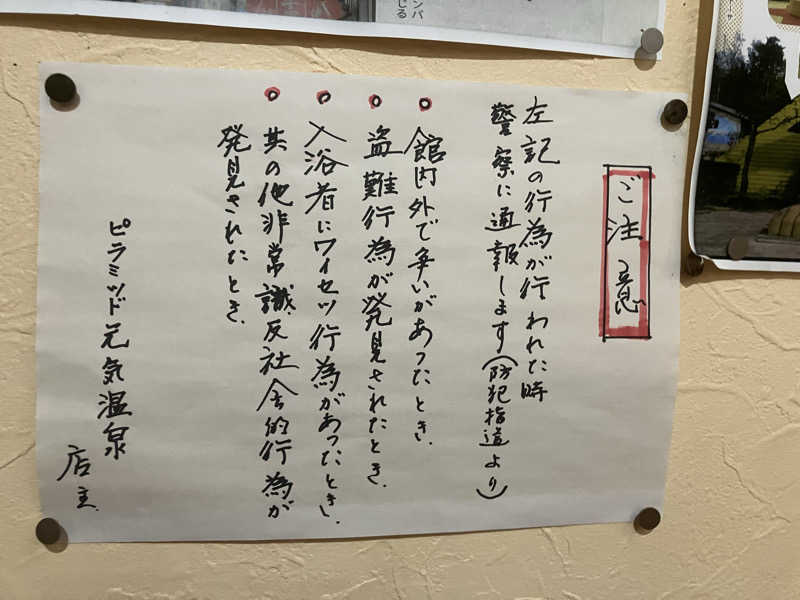 ご注意
左記の行為が行われた時
警察に通報します(防犯指導より)
館内外で争いがあったとき.
盗難行為が発見されたとき.
入浴者にワイセツ行為があったとき.
其の他非常識反社会的行為が
発見されたとき.
ピラミッド元気温泉
店主.